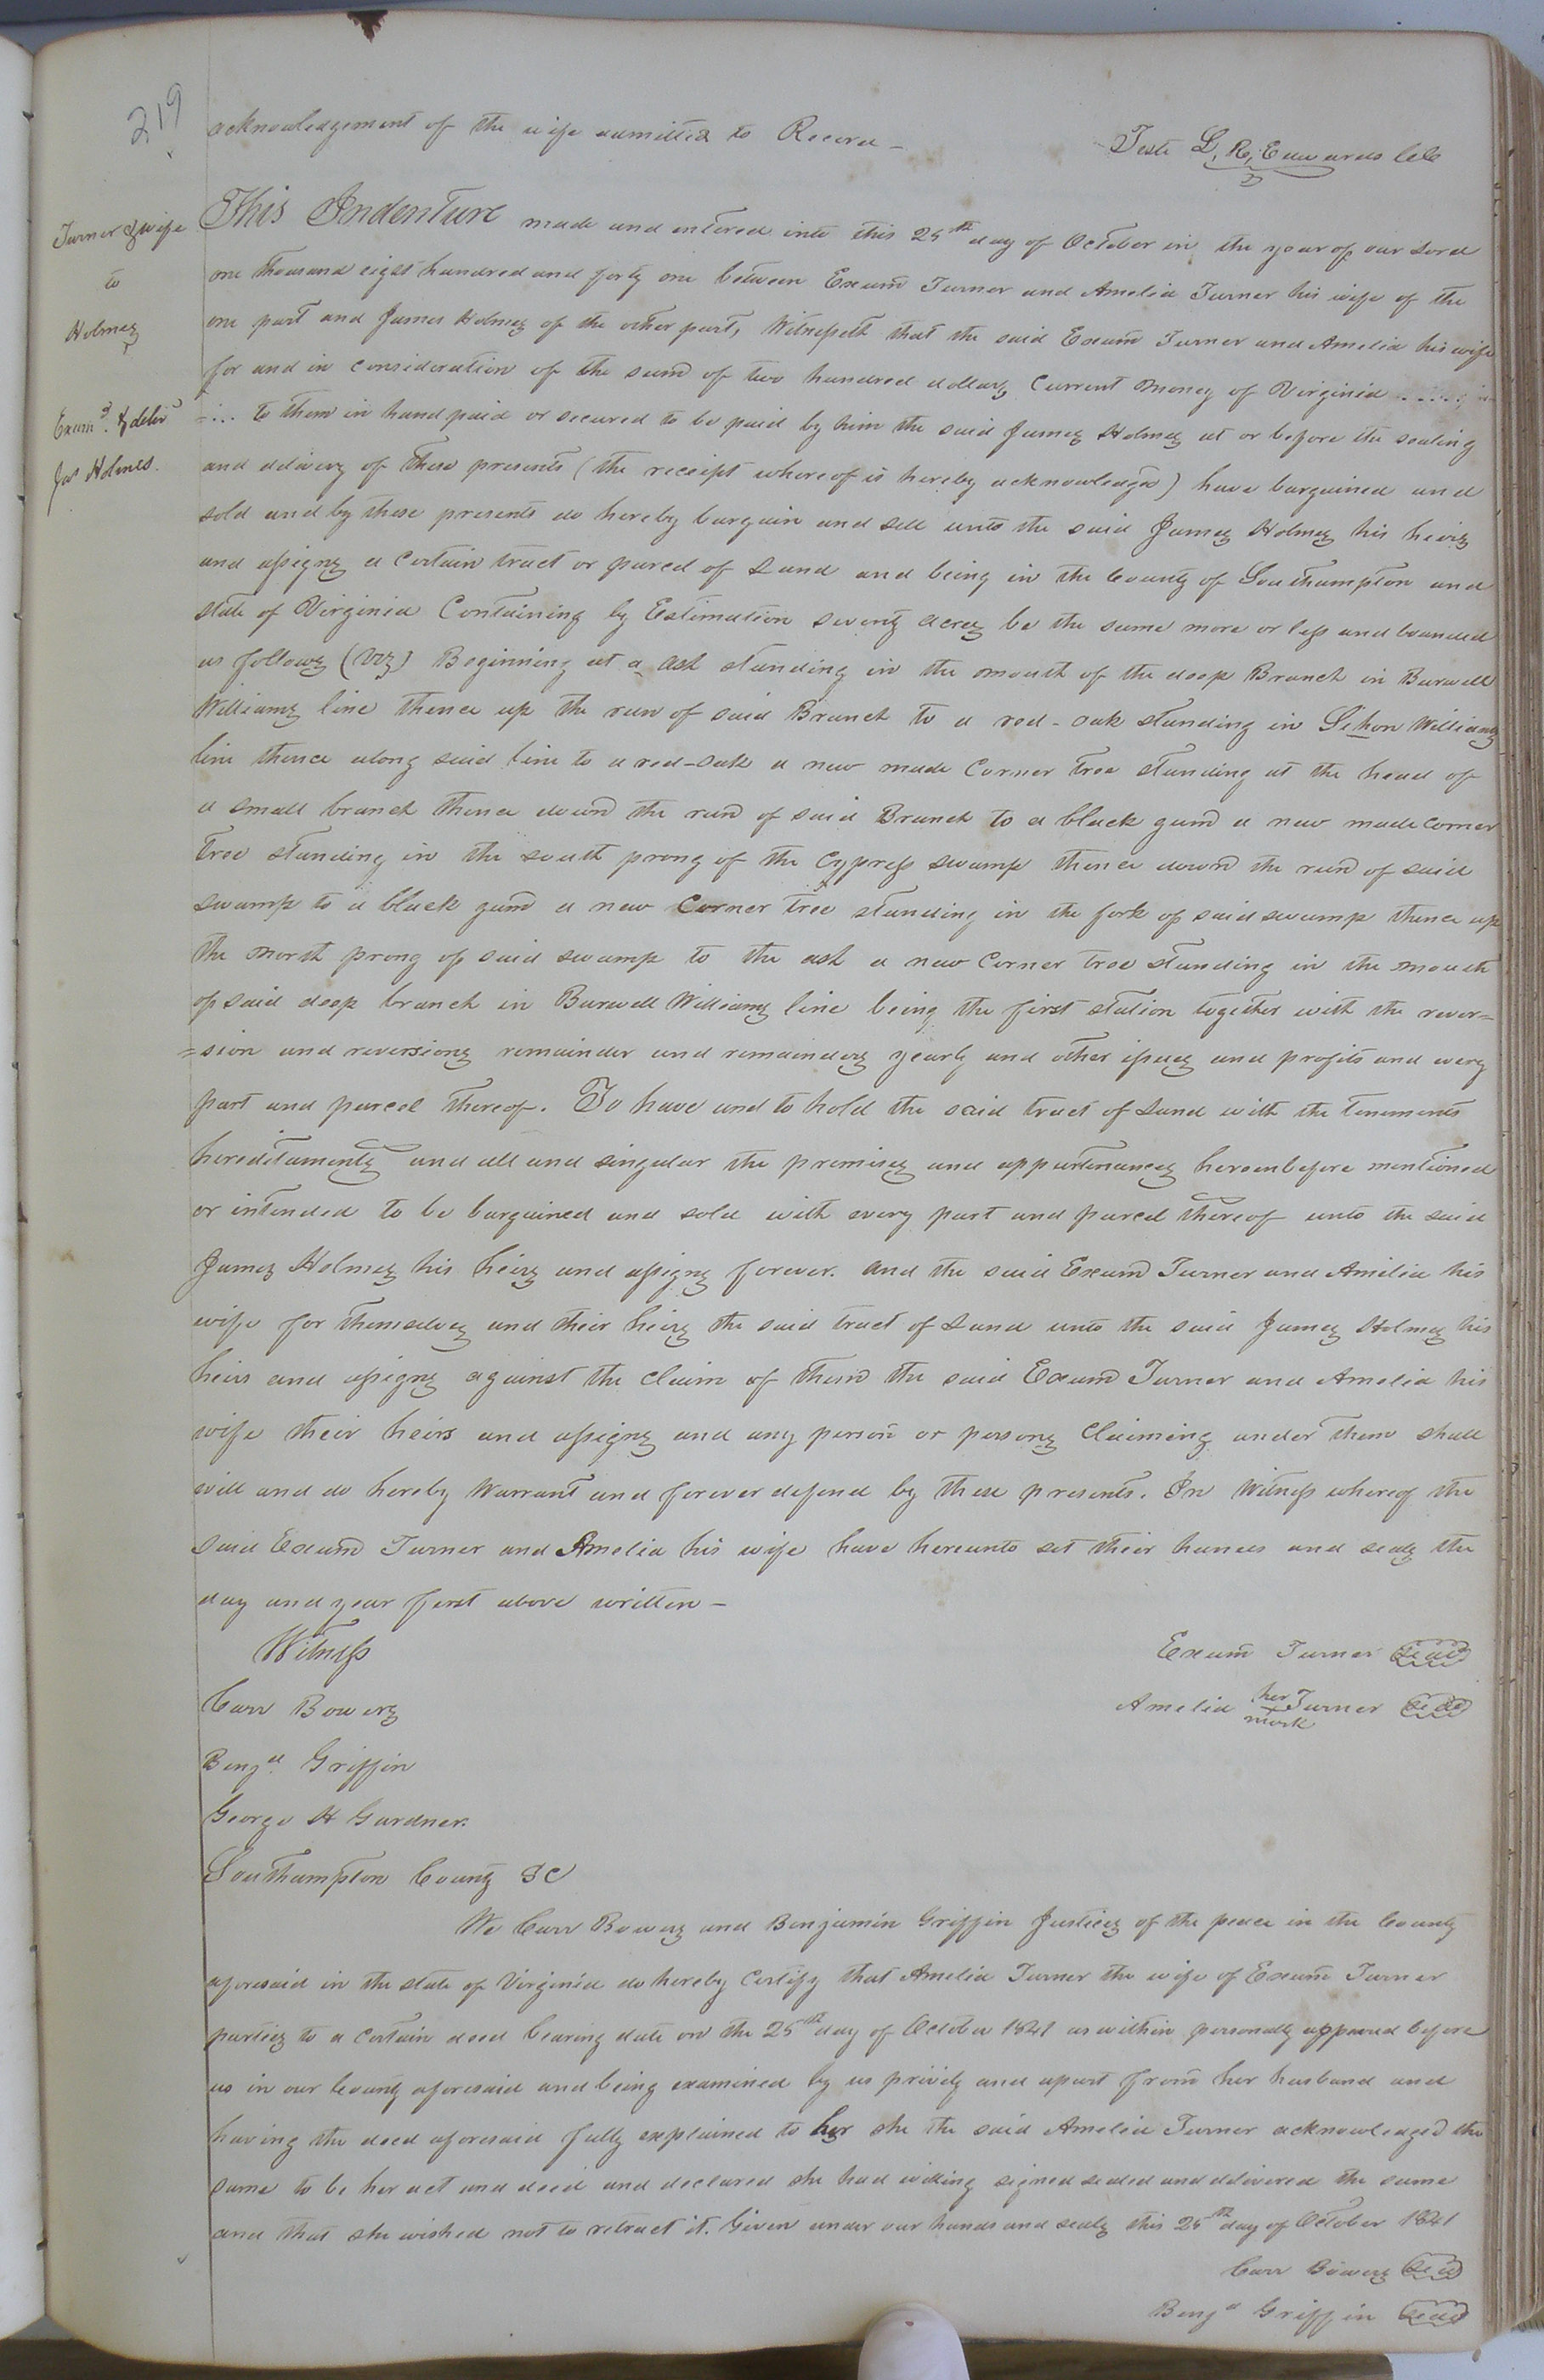 219
acknowledgement of the wife admitted to Record –
Teste L. R. Edwards CC
Turner & wife
to
Holmes
Examd. & delivd
Jas Holmes.
This Indenture made and entered into this 25th day of October in the year of our Lord
one thousand eight hundred and forty one between Exum Turner and Amelia Turner his wife of the
one part and James Holmes of the other part, Witnesseth that the said Exum Turner and Amelia his wife
for and in consideration of the sum of two hundred dollars Current money of Virginia
to them in hand paid or secured to be paid by him the said James Holmes at or before the sealing
and delivery of these presents (the receipt whereof is hereby acknowledgd) have bargained and
sold and by these presents do hereby bargain and sell unto the said James Holmes his heirs
and assigns a certain tract or parcel of Land and being in the County of Southampton and
state of Virginia Containing by Estimation seventy acres be the same more or less and bounded
as follows (Viz) Beginning at a ash standing in the mouth of the deep Branch in Burwell
Williams line thence up the run of said Branch to a red-oak standing in Sihon Williams
line thence along said line to a red-oak a new made Corner tree standing at the head of
a small branch thence down the run of said Branch to a black gum a new made Corner
tree standing in the south prong of the Cypress swamp thence down the run of said
swamp to a black gum a new Corner tree standing in the fork of said swamp thence up
the North prong of said swamp to the ash a new Corner tree standing in the mouth
of said deep branch in Burwell Williams line being the first station together with the rever=
=sion and reversions remainder and remainders yearly and other issues and profits and every
part and parcel thereof. To have and to hold the said tract of Land with the tenements
hereditaments and all and singular the premises and appurtenances hereinbefore mentioned
or intended to be bargained and sold with every part and parcel thereof unto the said
James Holmes his heirs and assigns forever. And the said Exum Turner and Amelia his
wife for themselves and their heirs the said tract of Land unto the said James Holmes his
heirs and assigns against the claim of them the said Exum Turner and Amelia his
wife their heirs and assigns and any person or persons Claiming under them shall
will and do hereby Warrant and forever defend by these presents. In Witness whereof the
said Exum Turner and Amelia his wife have hereunto set their hands and seals the
day and year first above written –
Witness
Exum Turner seal
Carr Bowers
Amelia her mark Turner seal
Benja. Griffin
George H Gardner.
Southampton County SC
We Carr Bowers and Benjamin Griffin Justices of the peace in the County
aforesaid in the state of Virginia do hereby Certify that Amelia Turner the wife of Exum Turner
parties to a certain deed bearing date on the 25th day of October 1841 as within personally appeared before
us in our County aforesaid and being examined by us privily and apart from her husband and
having the deed aforesaid fully explained to her she the said Amelia Turner acknowledged the
same to be her act and deed and declared she had willing signed sealed and delivered the same
and that she wished not to retract it. Given under our hands and seals this 25th day of October 1841
Carr Bowers seal
Benja Griffin seal